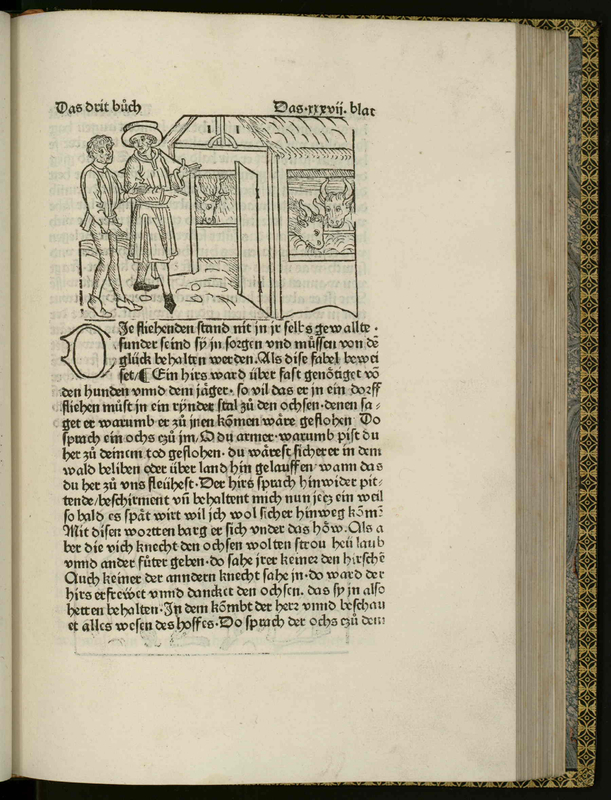 Das drit bůch
Das·xxxvij·blat
DJe fliehenden stand nit in jr selbs gewallte·
sunder seind sÿ in sorgen vnd müssen von dē
glück behalten werden. Als dise fabel bewei
set/¶ Ein hirs ward über fast genötiget vō
den hunden vnnd dem jäger· so vil das er in ein dorff
fliehen můst in ein rÿnder stal zů den ochsen·denen sa⸗
get er warumb er zů jnen kōmen wäre geflohen Do
sprach ein ochs czů jm/O du armer·warumb pist du
her zů deinem tod geflohen·du wärest sicherer in dem
wald beliben oder über land hin gelauffen/ wann das
du her zů vns fleühest·Der hirs sprach hinwider pit⸗
tende/beschirment vn̄ behaltent mich nun jecz ein weil
so bald es spät wirt wil jch wol sicher hinweg kōmē
Mit disen wortten barg er sich vnder das höw·Als a
ber die vich knecht den ochsen wolten strou heü laub
vnnd ander fůter geben·do sahe jrer keiner den hirschē
Auch keiner der anndern knecht sahe jn·do ward der
hirs erfrewet vnnd dancket den ochsen. das sÿ jn also
hetten behalten·Jn dem kōmbt der herr vnnd beschau
et alles wesen des hoffes·Do sprach der ochs czů dem